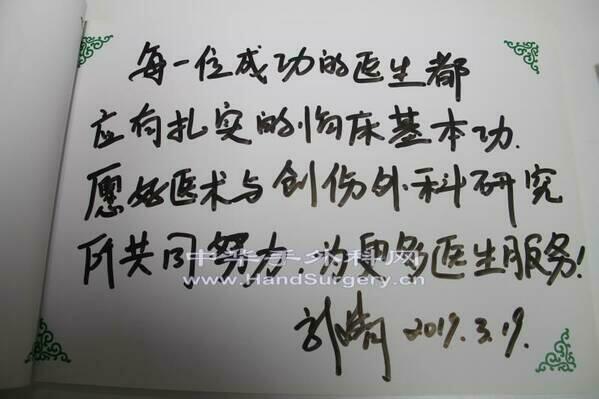 每一位成功的医生都
应有扎实的临床基本功.
愿好医术与创伤外科研究
所共同努力,为更多医生服务!
中华手外科网
www.HandSurgery.cn
2017.3.19.